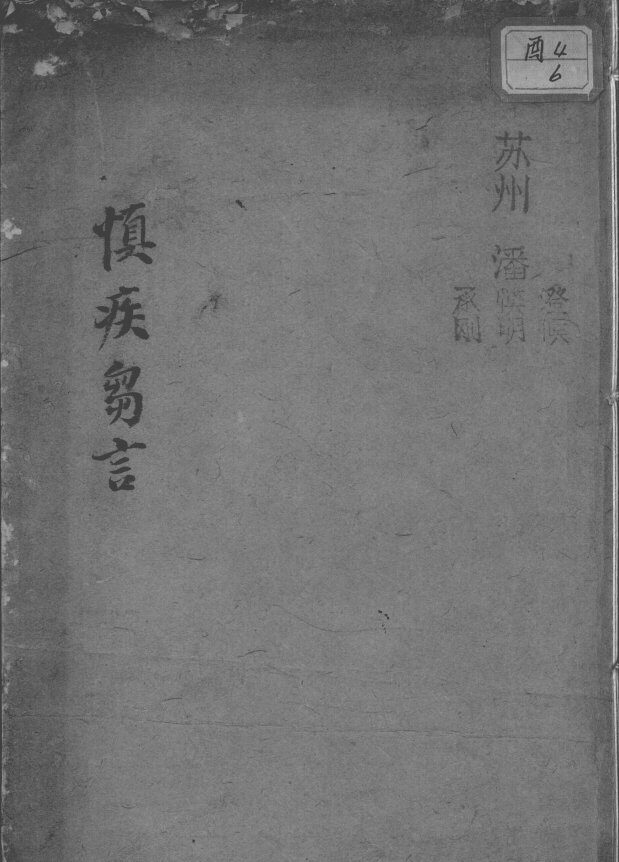 酉4
6
苏州 潘
承刚
慎疾芻言